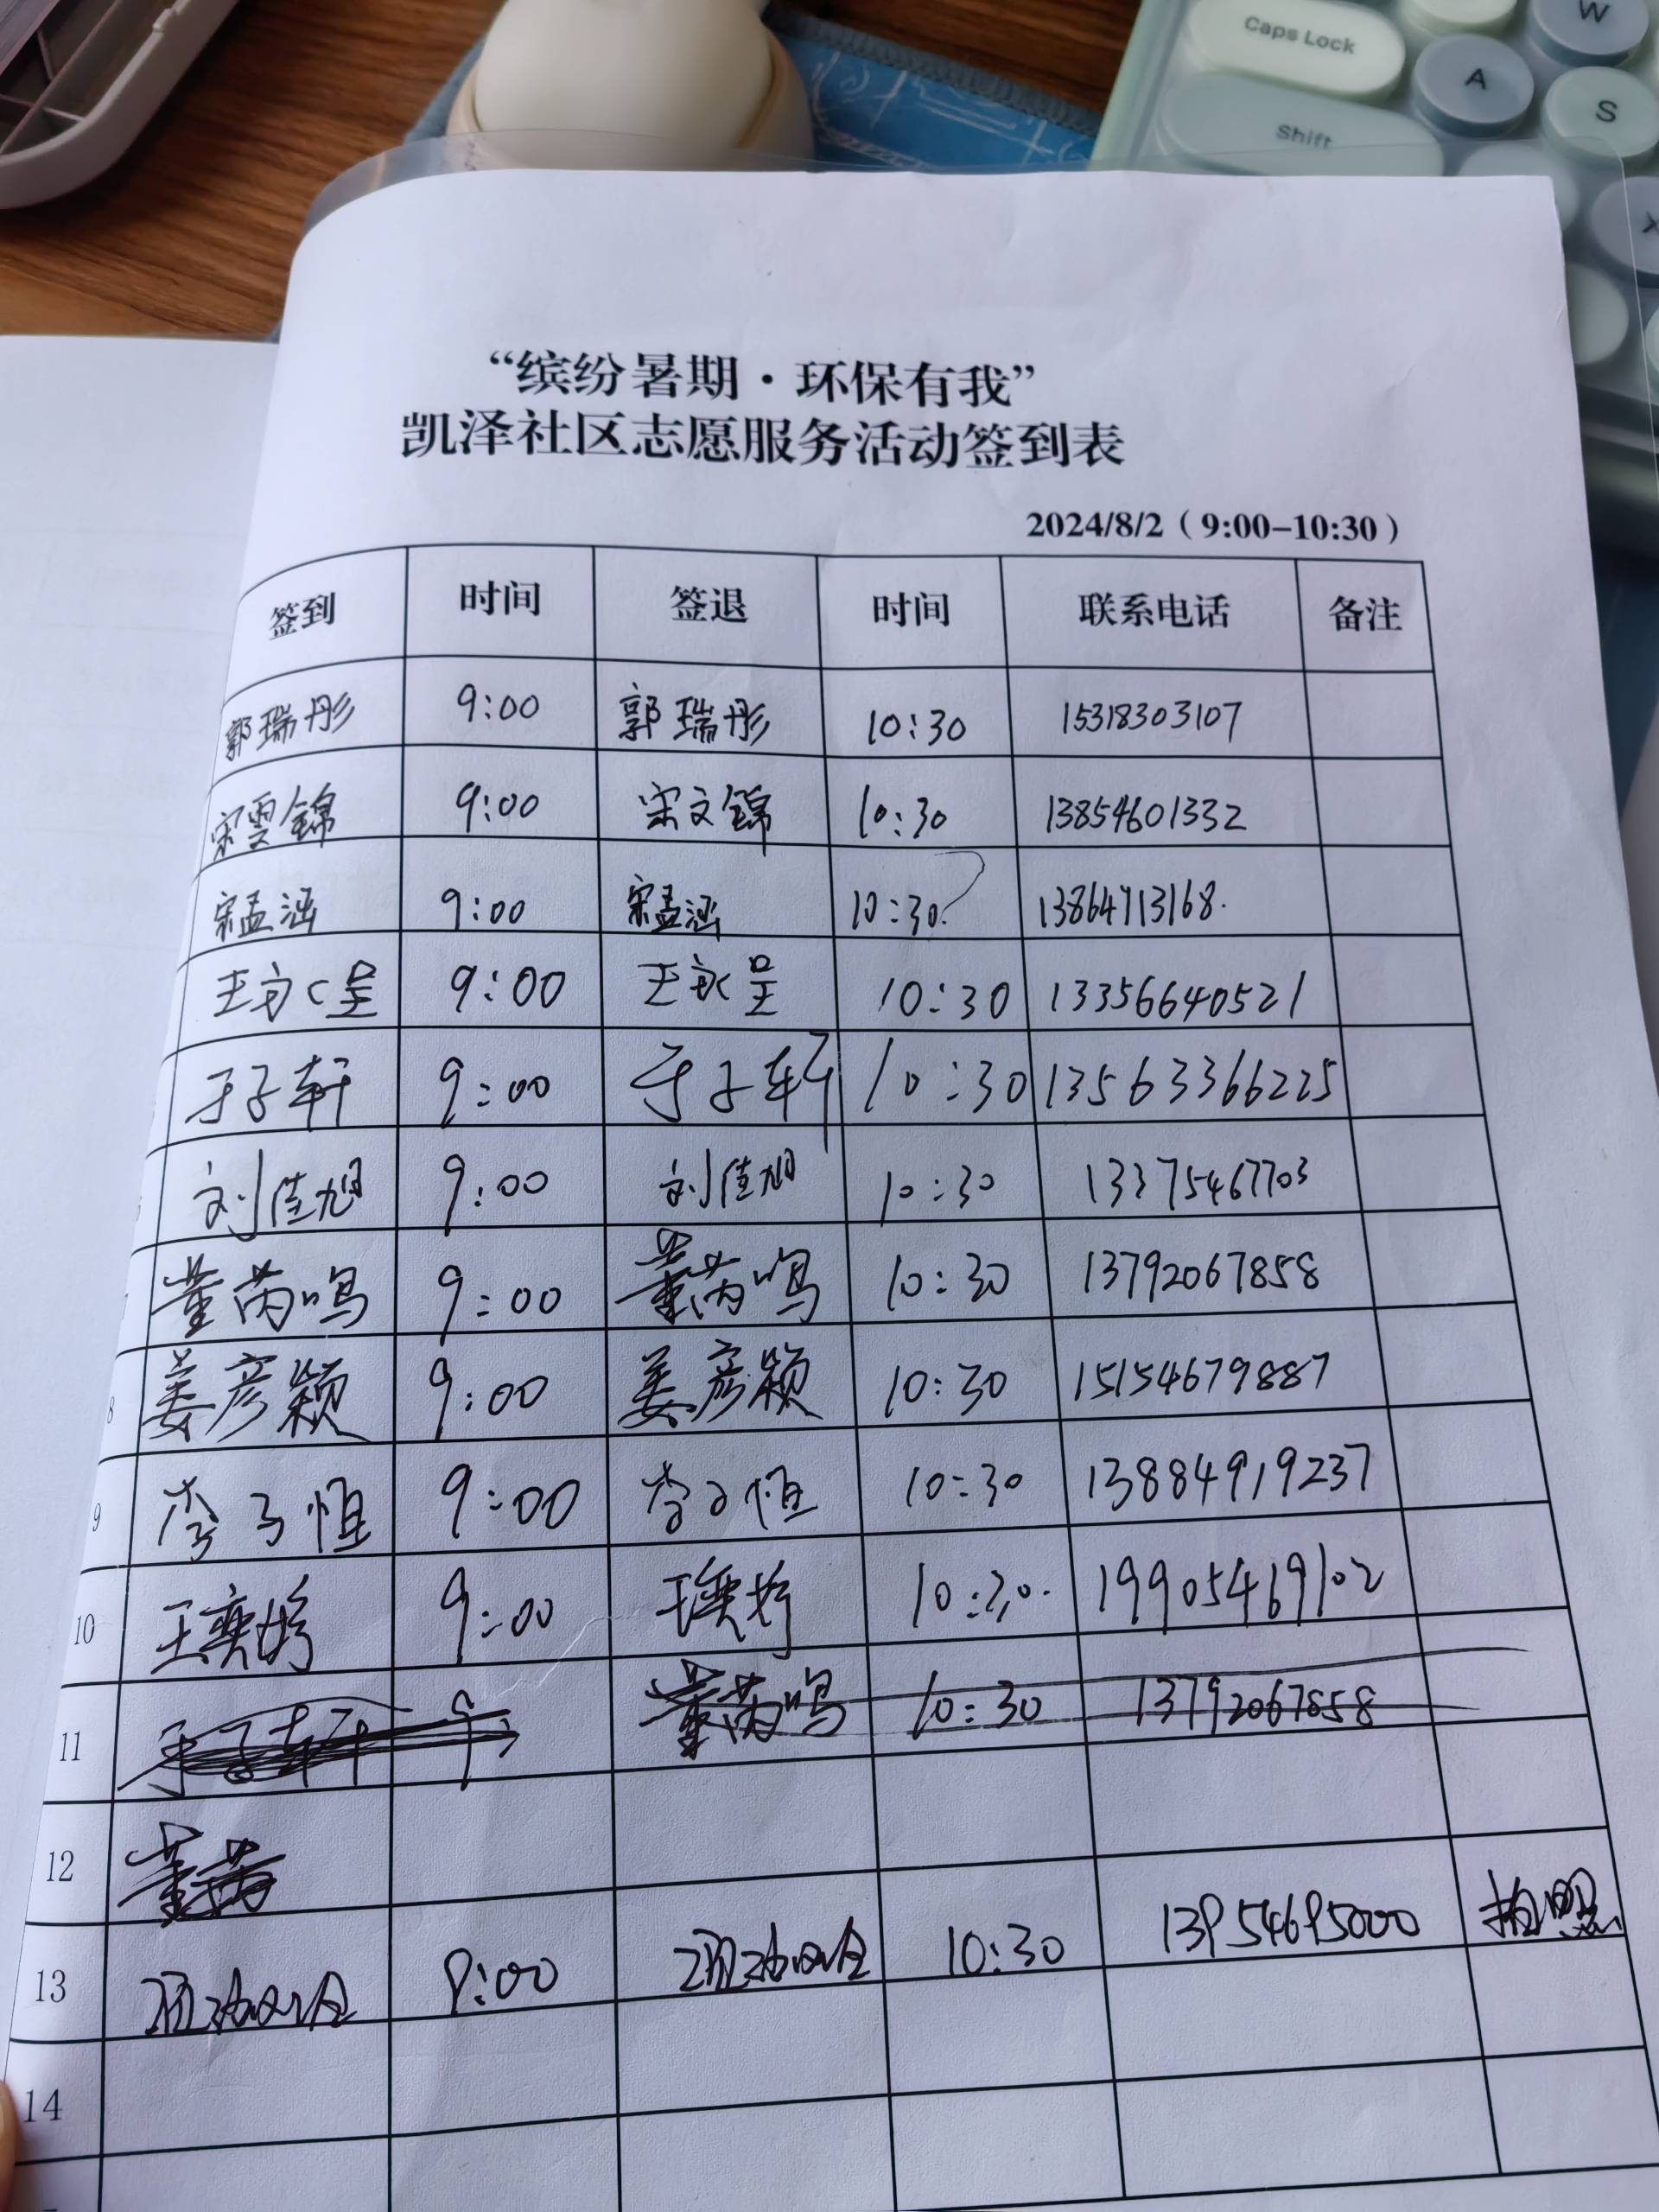 Caps Lock
W
A
S
Shift
X
“缤纷暑期·环保有我”
凯泽社区志愿服务活动签到表
2024/8/2（9:00-10:30）
签到 时间 签退 时间 联系电话 备注
郭瑞彤 9:00 郭瑞彤 10:30 15318303107
宋雯锦 9:00 宋文锦 10:30 13854601332
宋孟涵 9:00 宋孟涵 10:30 13864713168
王永呈 9:00 王永呈 10:30 13356640521
于子轩 9:00 于子轩 10:30 13563366225
刘佳旭 9:00 刘佳旭 10:30 13375467703
董芮鸣 9:00 董芮鸣 10:30 13792067858
8 姜彦颖 9:00 姜彦颖 10:30 15154679887
9 李子恒 9:00 李子恒 10:30 13884919237
10 王奕婷 9:00 王奕婷 10:30 19905469102
11 于子轩 9 董芮鸣 10:30 13792067858
12 董芮
13 9:00 10:30 13954695000 拍照
14